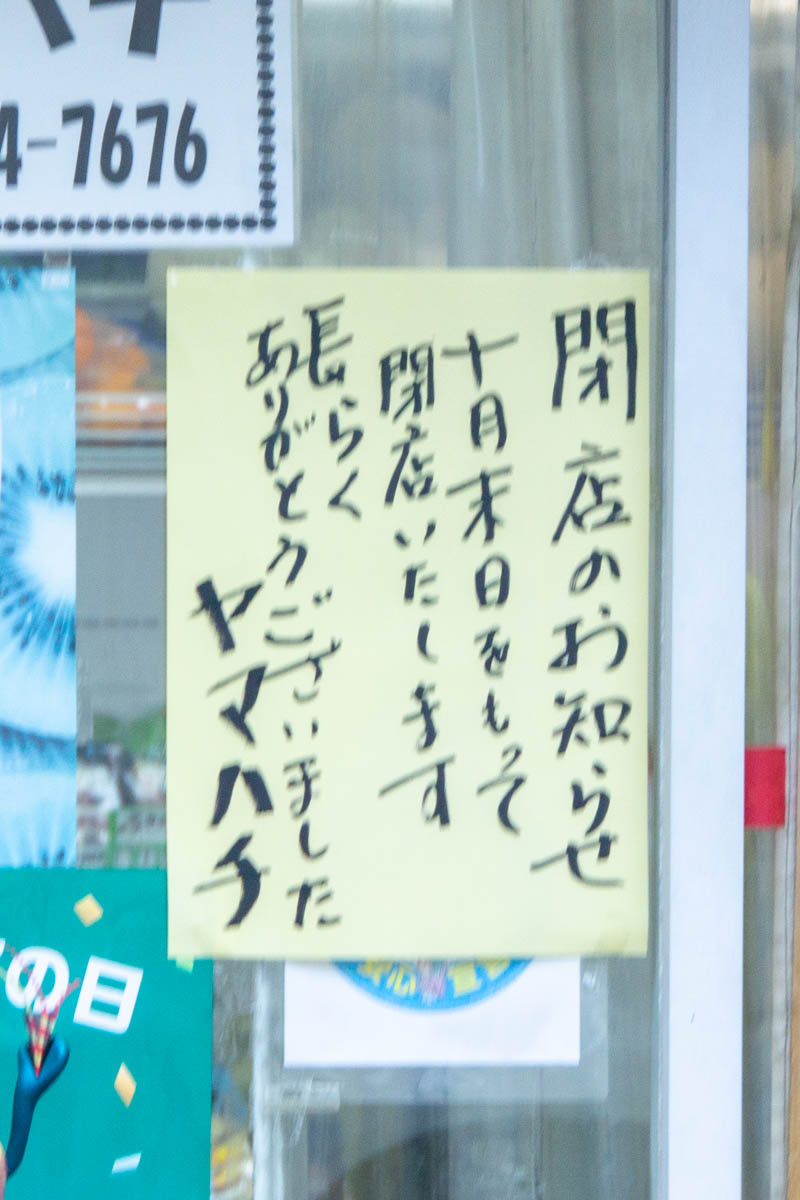 4-7676
閉店のお知らせ
十月末日をもって
閉店いたします
長らく
ありがとうございました
ヤマハチ
の日